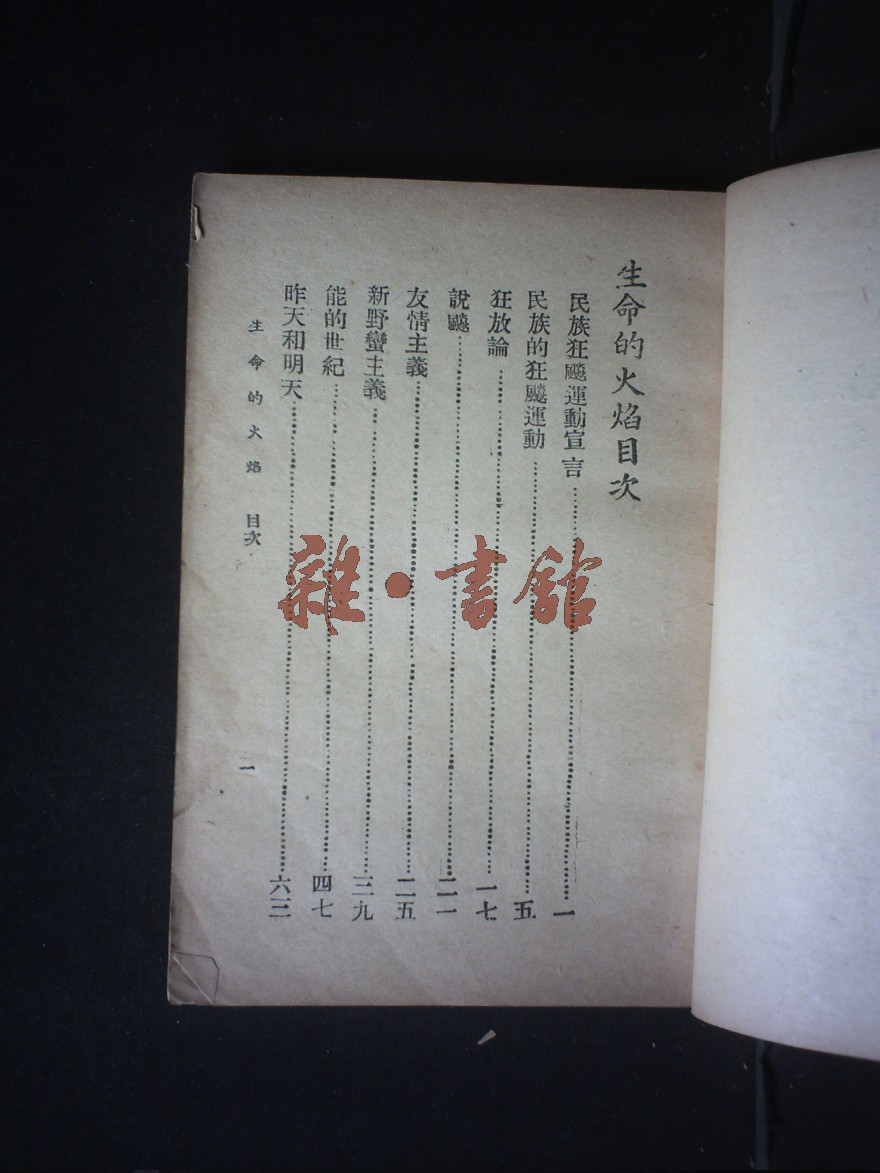 生命的火焰目次
民族狂飈運動宣言……一
民族的狂飈運動……五
狂放論……一七
說飈……二一
友情主義……二五
新野蠻主義……三九
能的世紀……四七
昨天和明天……六三
生命的火焰 目次
一
雜·書館